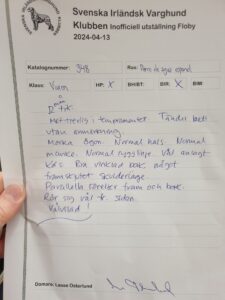 Svenska Irländsk Varghund
Klubben Inofficiell utställning Floby
2024-04-13
Katalognummer: Ras:
Klass: HP: X BHIRT: BIR: X BIM
2
Helt riktig i temperamentet. Tänder bett
utan anmärkning.
Mörka ögon. Normal hals. Normal
manke. Normal rygglinje. Väl ansatt
kors. Bra vinklad bak, något
framskjutet skulderläge.
Parallella rörelser fram och bak.
Rör sig väl fr. sidan.
Välvisad!
Domare: Lasse Osterlund